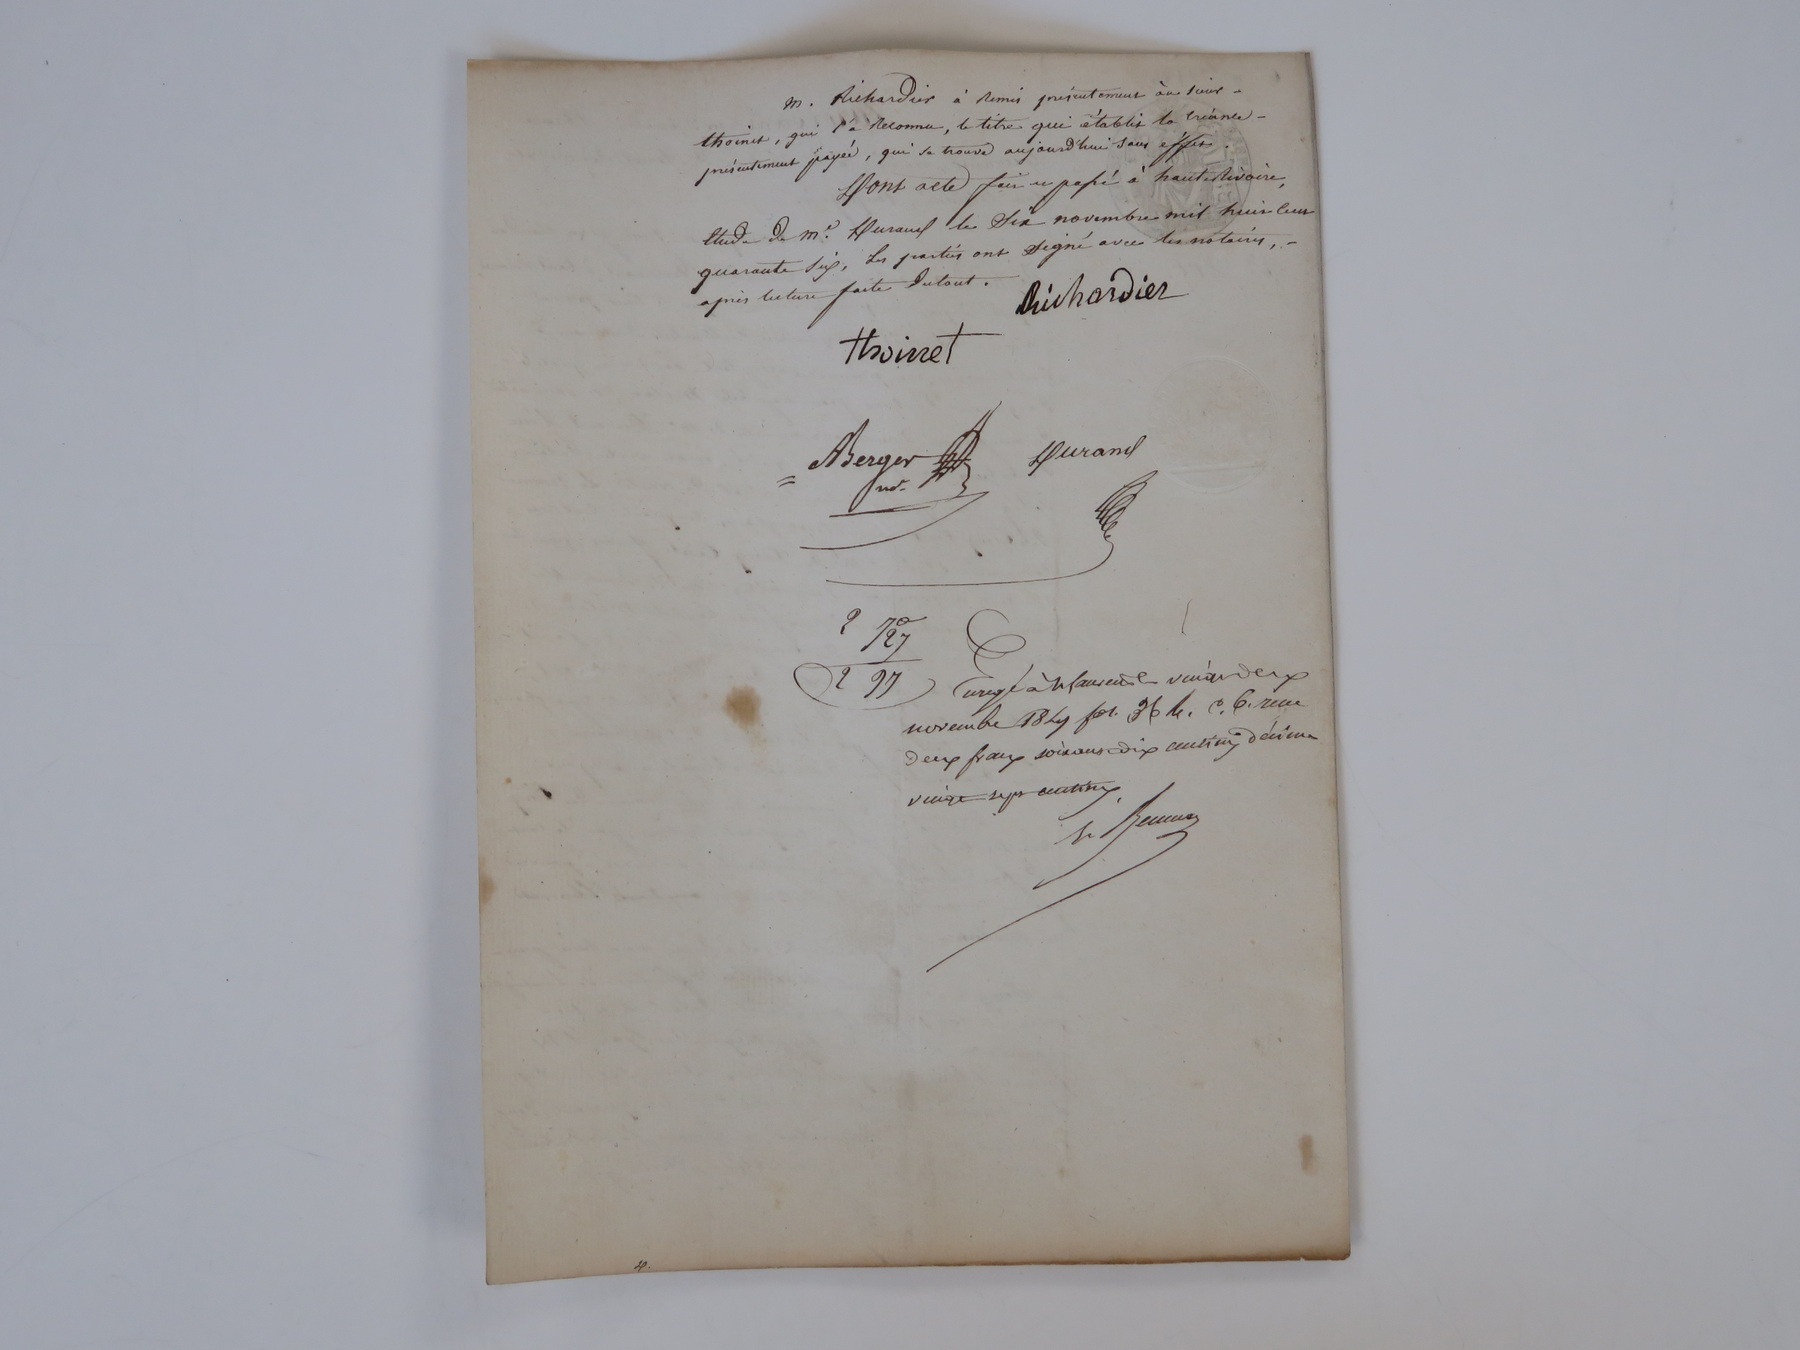 M. Richardier à remis présentement au sieur -
thoinet, qui l'a reconnu, le titre qui établit la créance -
présentement payée, qui se trouve aujourd'hui sans éffet.
Dont acte fait et passé à haute Rivoire,
Etude de Me. Durand le Six novembre mil huit cent
quarante Six, Les parties ont Signé avec les notaires, -
après lecture faite du tout.
Richardier
thoinet
ABerger
not.
Durand
2 70
27
2 97
Enregé à St Laurent le vingt deux
novembre fol. 36 c. 6. reçu
deux francs soixante dix centimes décime
vingt sept centimes